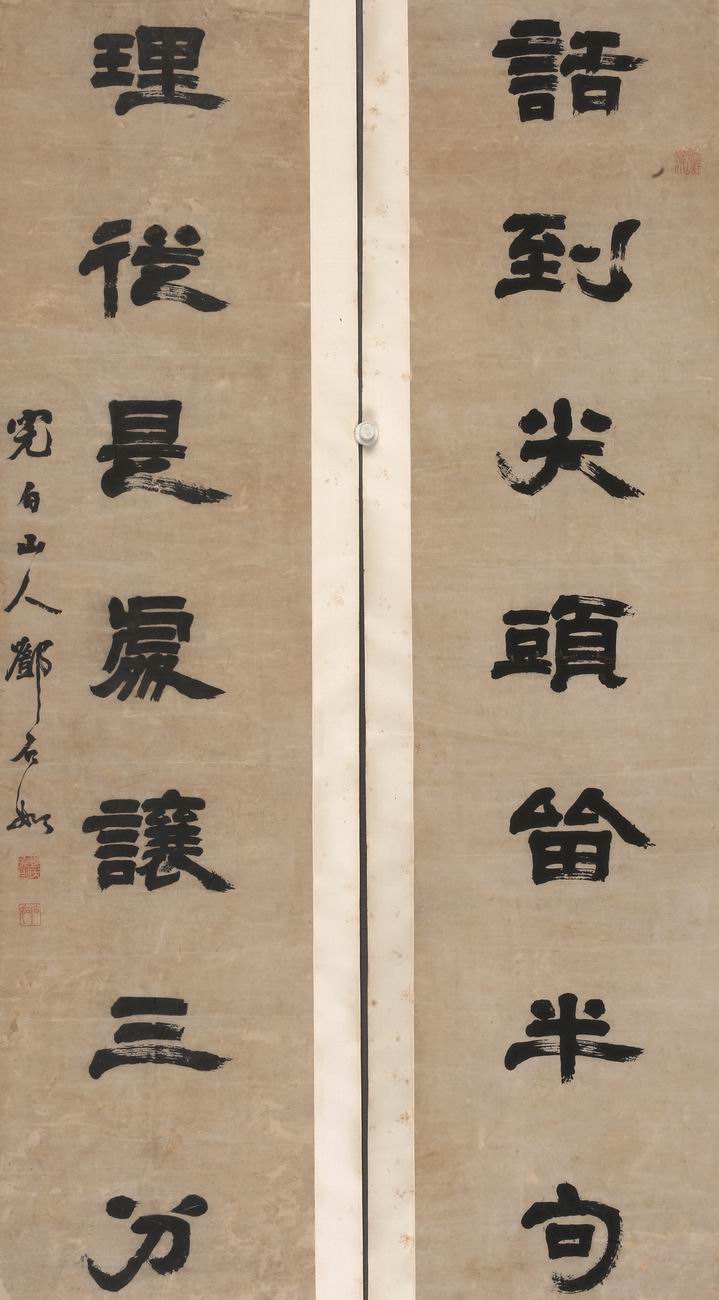 話到尖頭留半句
理從是處讓三分
完白山人鄧石如